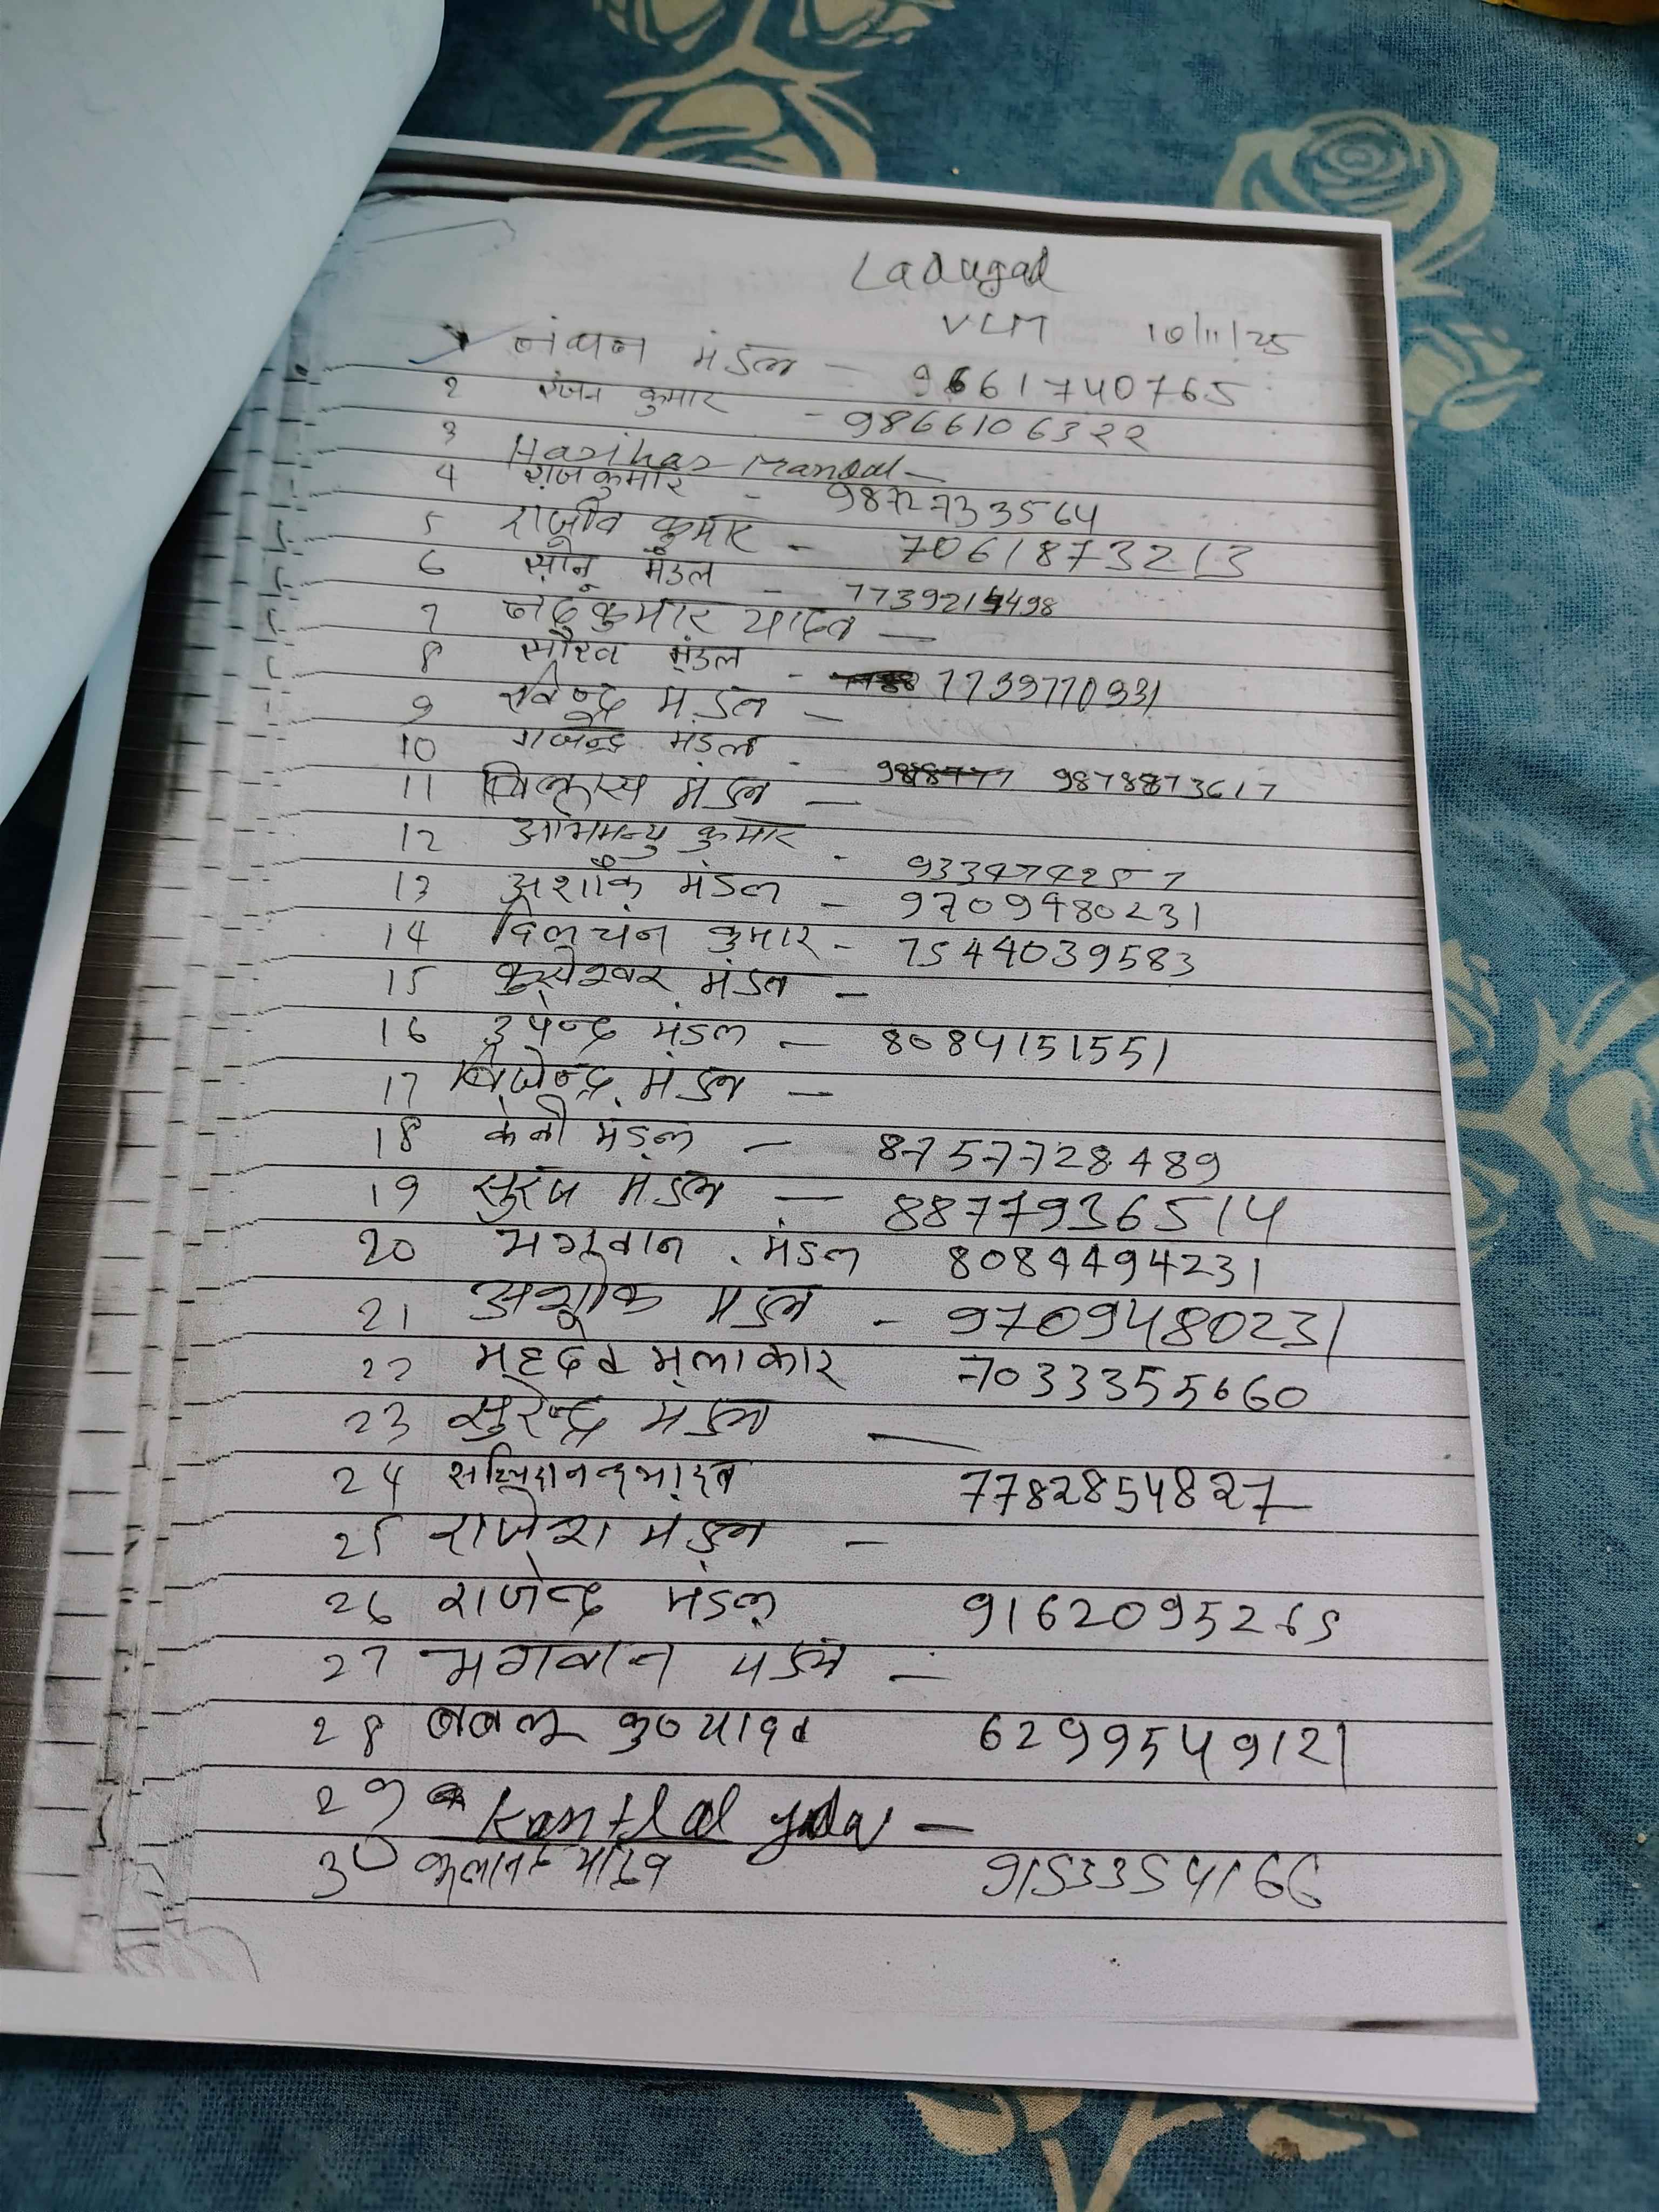 Ladugad
VLM 10/11/25
1 नंदन मंडल - 9661740765
2 रंजन कुमार - 9866106322
3 Harihar Mandal -
4 राजकुमार - 9872733564
5 राजीव कुमार - 7061873213
6 सोनू मंडल - 7739214498
7 नंदकुमार यादव -
8 सौरव मंडल - 7739770931
9 रविन्द्र मंडल -
10 गजेन्द्र मंडल - 9878873617
11 मंडल -
12 अभिमन्यु कुमार - 9334742571
13 अशोक मंडल - 9709480231
14 दिलचंन कुमार - 7544039583
15 कुसेश्वर मंडल -
16 उपेन्द्र मंडल - 8084151551
17 विजेन्द्र मंडल -
18 मंडल - 8757728489
19 सुरज मंडल - 8877936514
20 भगवान मंडल 8084494231
21 अशोक मंडल - 9709480231
22 महदेव मलाकार 7033355660
23 सुरेन्द्र मंडल -
24 7782854827
25 राजेश मंडल -
26 राजेन्द्र मंडल 9162095265
27 भगवान मंडल -
28 बबलू कु० यादव 6299549121
29 Kantlal yadav -
30 कलानंद यादव 9153354166